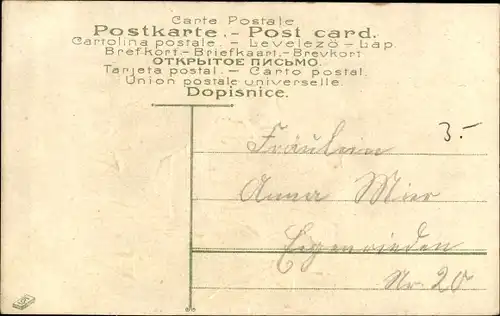 Carte Postale.
Postkarte.-Post card.
Cartolina postale. - Levelező-Lap.
Brefkort.-Briefkaart.-Brevkort
ОТКРЫТОЕ ПИСЬМО.
Tarjeta postal. - Carto postal.
Union postale universelle.
Dopisnice.
3.-
Fräulein
Anna Mier
Eigenrieden
Nr. 20